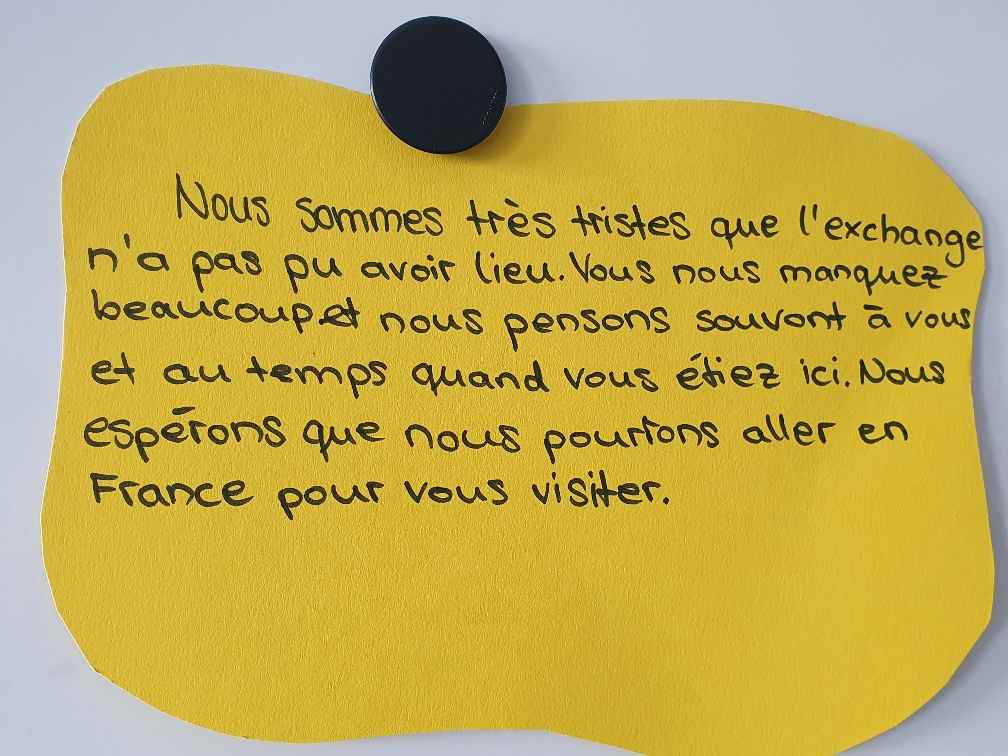 Nous sommes très tristes que l'exchange
n'a pas pu avoir lieu. Vous nous manquez
beaucoup et nous pensons souvont à vous
et au temps quand vous étiez ici. Nous
espérons que nous pourrons aller en
France pour vous visiter.